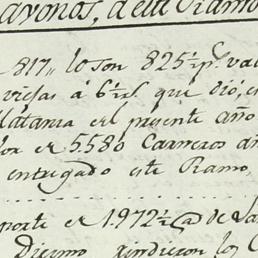 ayonos, a este Ramo
817,, lo son 825½ps. va
viejas á 6½rs. que dió, e
Matanza en el presente año
los 5.580 Carneros
entregado este Ramo,
porte el 1.972½@ de la
Diezmo rindieron los C